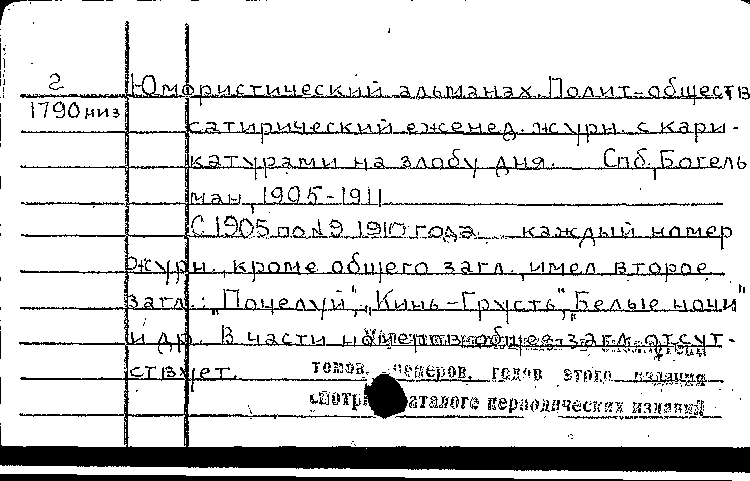 2
1790 низ
Юмористический альманах. Полит-обществ
сатирический еженед. журн. с кари-
катурами на злобу дня. Спб., Богель
ман, 1905-1911
С 1905 по №9 1910 года каждый номер
журн., кроме общего загл., имел второе
загл.: "Поцелуй", "Кинь-Грусть", "Белые ночи"
и др. В части номеров общее загл. отсут-
ствует.
томов, номеров, годов этого издания
смотри каталоге периодических изданий